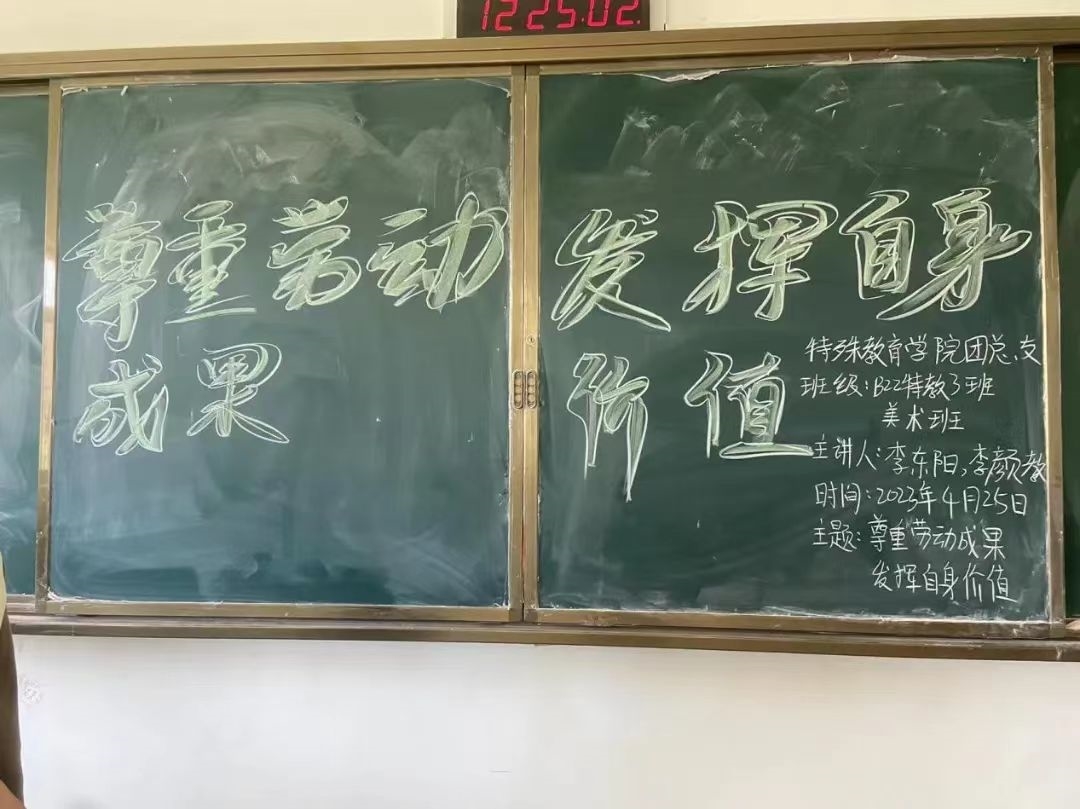 12:25:02
尊重劳动
成果
发挥自身
价值
特殊教育学院团总支
班级:B22特教3班
美术班
主讲人:李东阳,李颜教
时间:2023年4月25日
主题:尊重劳动成果
发挥自身价值